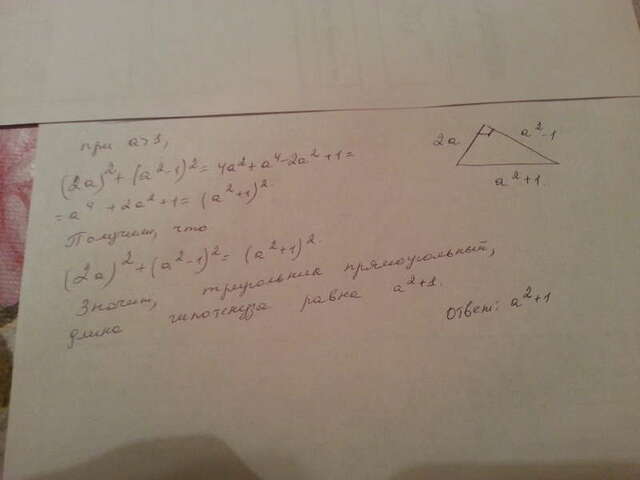 при a>1,
(2a)² + (a²-1)² = 4a² + a⁴ - 2a² + 1 =
= a⁴ + 2a² + 1 = (a² + 1)².
Получим, что
(2a)² + (a²-1)² = (a²+1)².
Значит, треугольник прямоугольный,
длина гипотенуза равна a²+1.
2a
a²-1
a²+1.
Ответ: a²+1